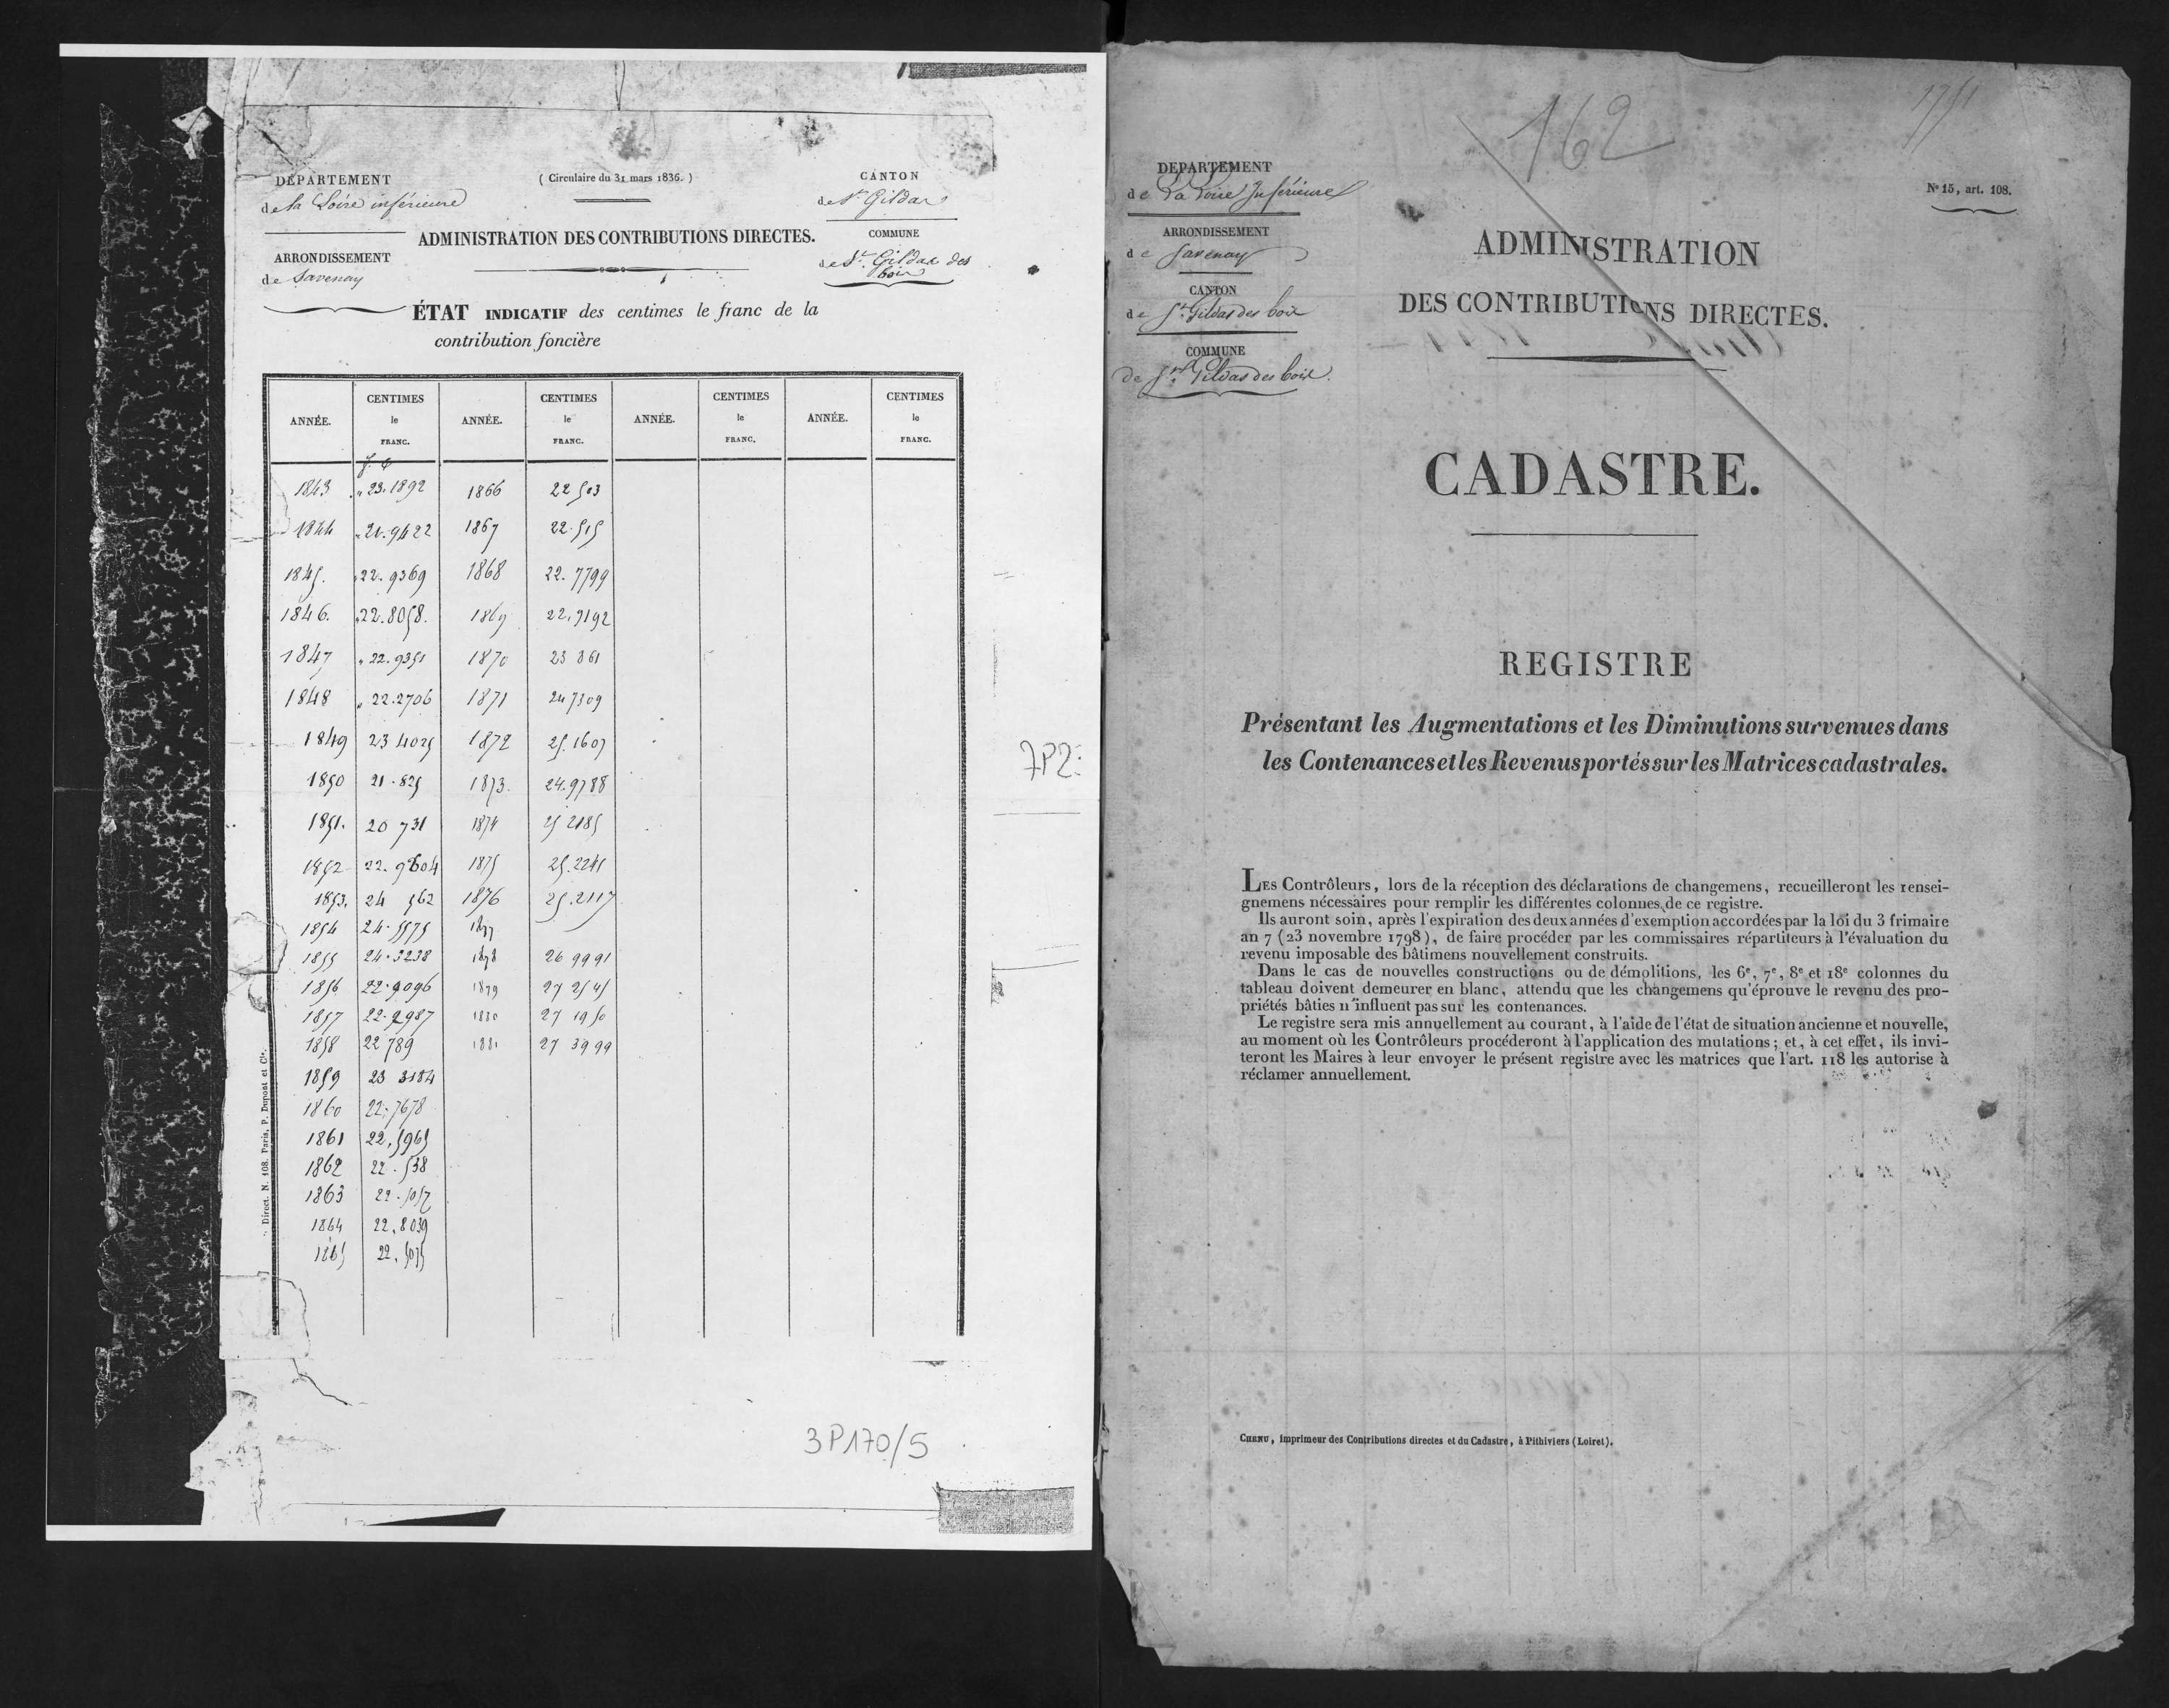 DÉPARTEMENT
de la Loire inférieure
( Circulaire du 31 mars 1836. )
CANTON
de St Gildas
ADMINISTRATION DES CONTRIBUTIONS DIRECTES.
COMMUNE
de St Gildas des
bois
ARRONDISSEMENT
de Savenay
ÉTAT INDICATIF des centimes le franc de la
contribution foncière
ANNÉE. CENTIMES le FRANC. ANNÉE. CENTIMES le FRANC. ANNÉE. CENTIMES le FRANC. ANNÉE. CENTIMES le FRANC.
f. c
1843 " 23.1892 1866 22 503
1844 " 21.9422 1867 22.515
1845. " 22.9369 1868 22.7799
1846. " 22.8058. 1869 22.9192
1847 " 22.9351 1870 23 861
1848 " 22.2706 1871 24 7309
1849 23 4025 1872 25.1607
1850 21.825 1873. 24.9788
1851. 20 731 1874 25 2185
1852 22.9604 1875 25.2245
1853. 24 562 1876 25.2117
1854 24.5575 1877
1855 24.3238 1878 26 9991
1856 22.9096 1879 27 2545
1857 22.2987 1880 27 1950
1858 22 789 1881 27 3999
1859 23 3184
1860 22.7678
1861 22.5965
1862 22.538
1863 22.5057
1864 22.8039
1865 22.5075
Direct. N. 108. Paris, P. Dupont et Cie.
7P2:
3P170/5
162
1751
DEPARTEMENT
de La Loire Inférieure
N° 15, art. 108.
ARRONDISSEMENT
de Savenay
CANTON
de St Gildas des bois
COMMUNE
De St Gildas des bois.
ADMINISTRATION
DES CONTRIBUTIONS DIRECTES.
CADASTRE.
REGISTRE
Présentant les Augmentations et les Diminutions survenues dans
les Contenances et les Revenus portés sur les Matrices cadastrales.
LES Contrôleurs, lors de la réception des déclarations de changemens, recueilleront les rensei-
gnemens nécessaires pour remplir les différentes colonnes de ce registre.
Ils auront soin, après l'expiration des deux années d'exemption accordées par la loi du 3 frimaire
an 7 (23 novembre 1798), de faire procéder par les commissaires répartiteurs à l'évaluation du
revenu imposable des bâtimens nouvellement construits.
Dans le cas de nouvelles constructions ou de démolitions, les 6e, 7e, 8e et 18e colonnes du
tableau doivent demeurer en blanc, attendu que les changemens qu'éprouve le revenu des pro-
priétés bâties n'influent pas sur les contenances.
Le registre sera mis annuellement au courant, à l'aide de l'état de situation ancienne et nouvelle,
au moment où les Contrôleurs procéderont à l'application des mutations; et, à cet effet, ils invi-
teront les Maires à leur envoyer le présent registre avec les matrices que l'art. 118 les autorise à
réclamer annuellement.
CHENU, imprimeur des Contributions directes et du Cadastre, à Pithiviers (Loiret).